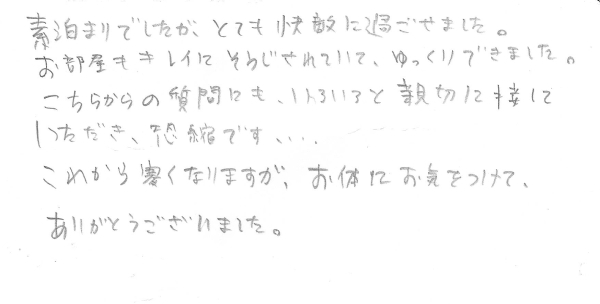 素泊まりでしたが、とても快敵に過ごせました。
お部屋もキレイにそうじされていて、ゆっくりできました。
こちらからの質問にも、いろいろと親切に接して
いただき、恐縮です、...
これから寒くなりますが、お体にお気をつけて、
ありがとうございました。